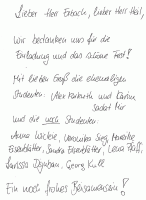 Lieber Herr Erbach, lieber Herr Heil,
wir bedanken uns für die
Einladung und das schöne Fest!
Mit lieben Gruß die ehemaligen
Studenten: Alex und Karim
Sadat Mir
und die noch Studenten:
Anna Veronika Sieg,
Eisenblätter, Sandra Eisenblätter, Lena
Larissa Georg Kull
Ein noch frohes Beisammensein!